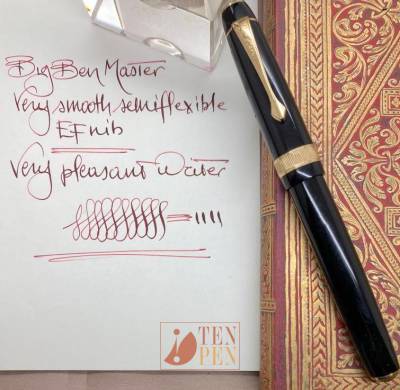 Big Ben Master
Very smooth semiflexible
EF nib
Very pleasant writer
TEN
PEN